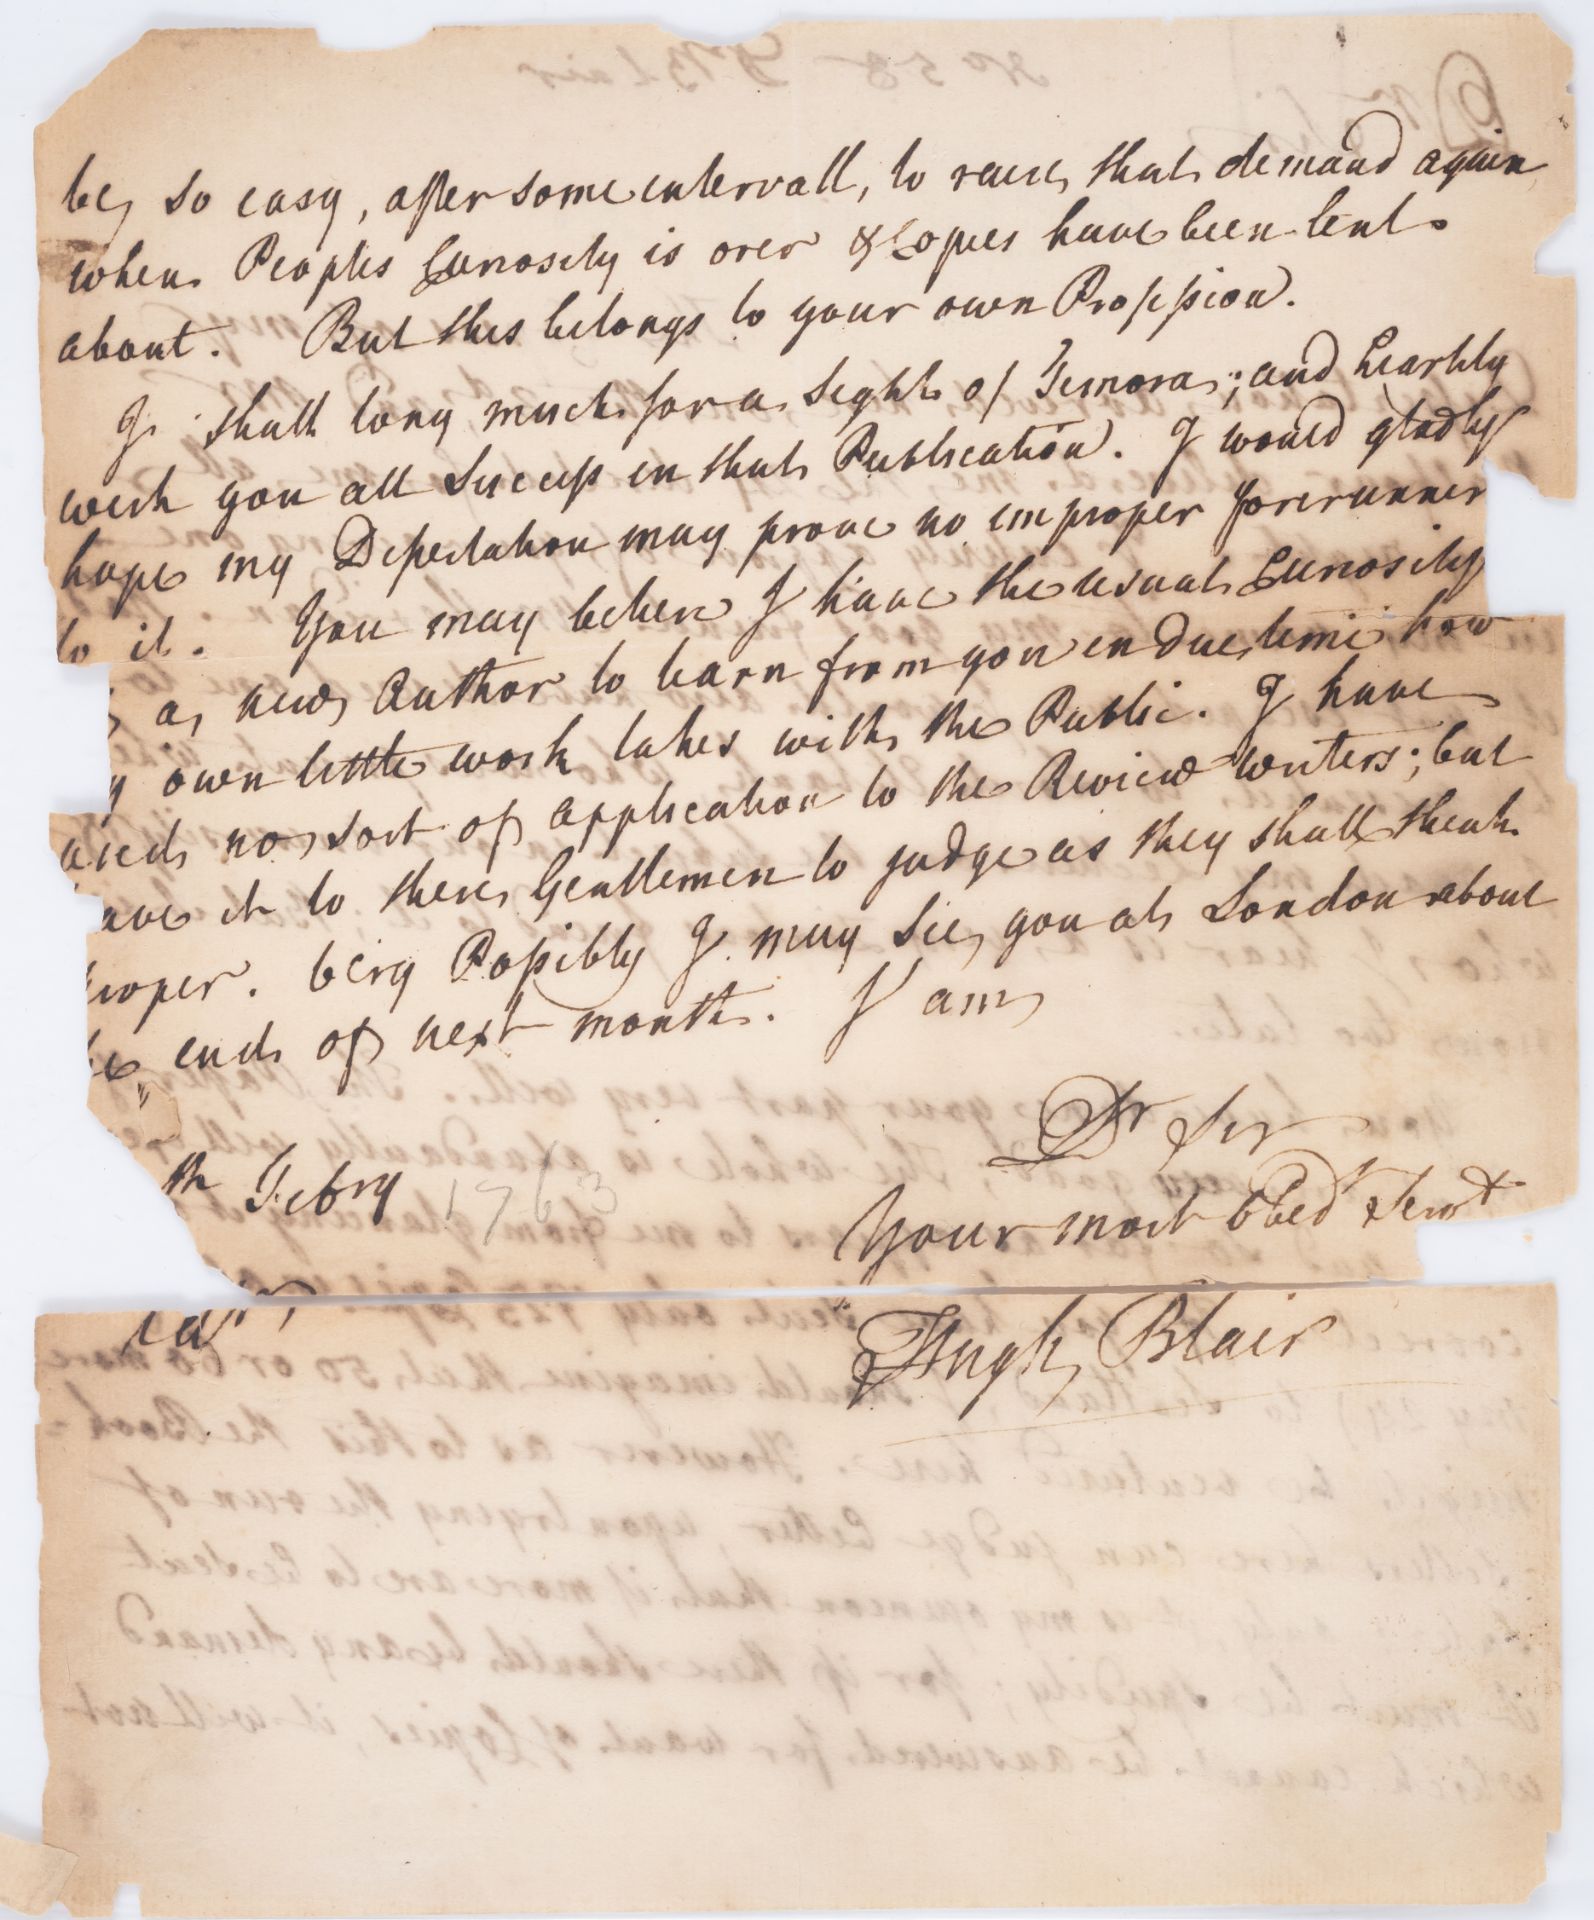 be so easy, after some intervall, to raise that demand again
when Peoples Curiosity is over & Copies have been lent
about. But this belongs to your own Profession.
I shall long much for a Sight of Temora; and heartily
wish you all Success in that Publication. I would gladly
hope my Dissertation may prove no improper forerunner
to it. You may believe I have the usual Curiosity
a new Author to learn from you in due time how
y own little work takes with the Public. I have
no sort of application to the Review writers; but
ave it to these Gentlemen to judge as they shall think
roper. Very Possibly I may see you at London about
end of next month. I am
Dr Sir
th Febry 1763
Your most Obedt Servt
Hugh Blair